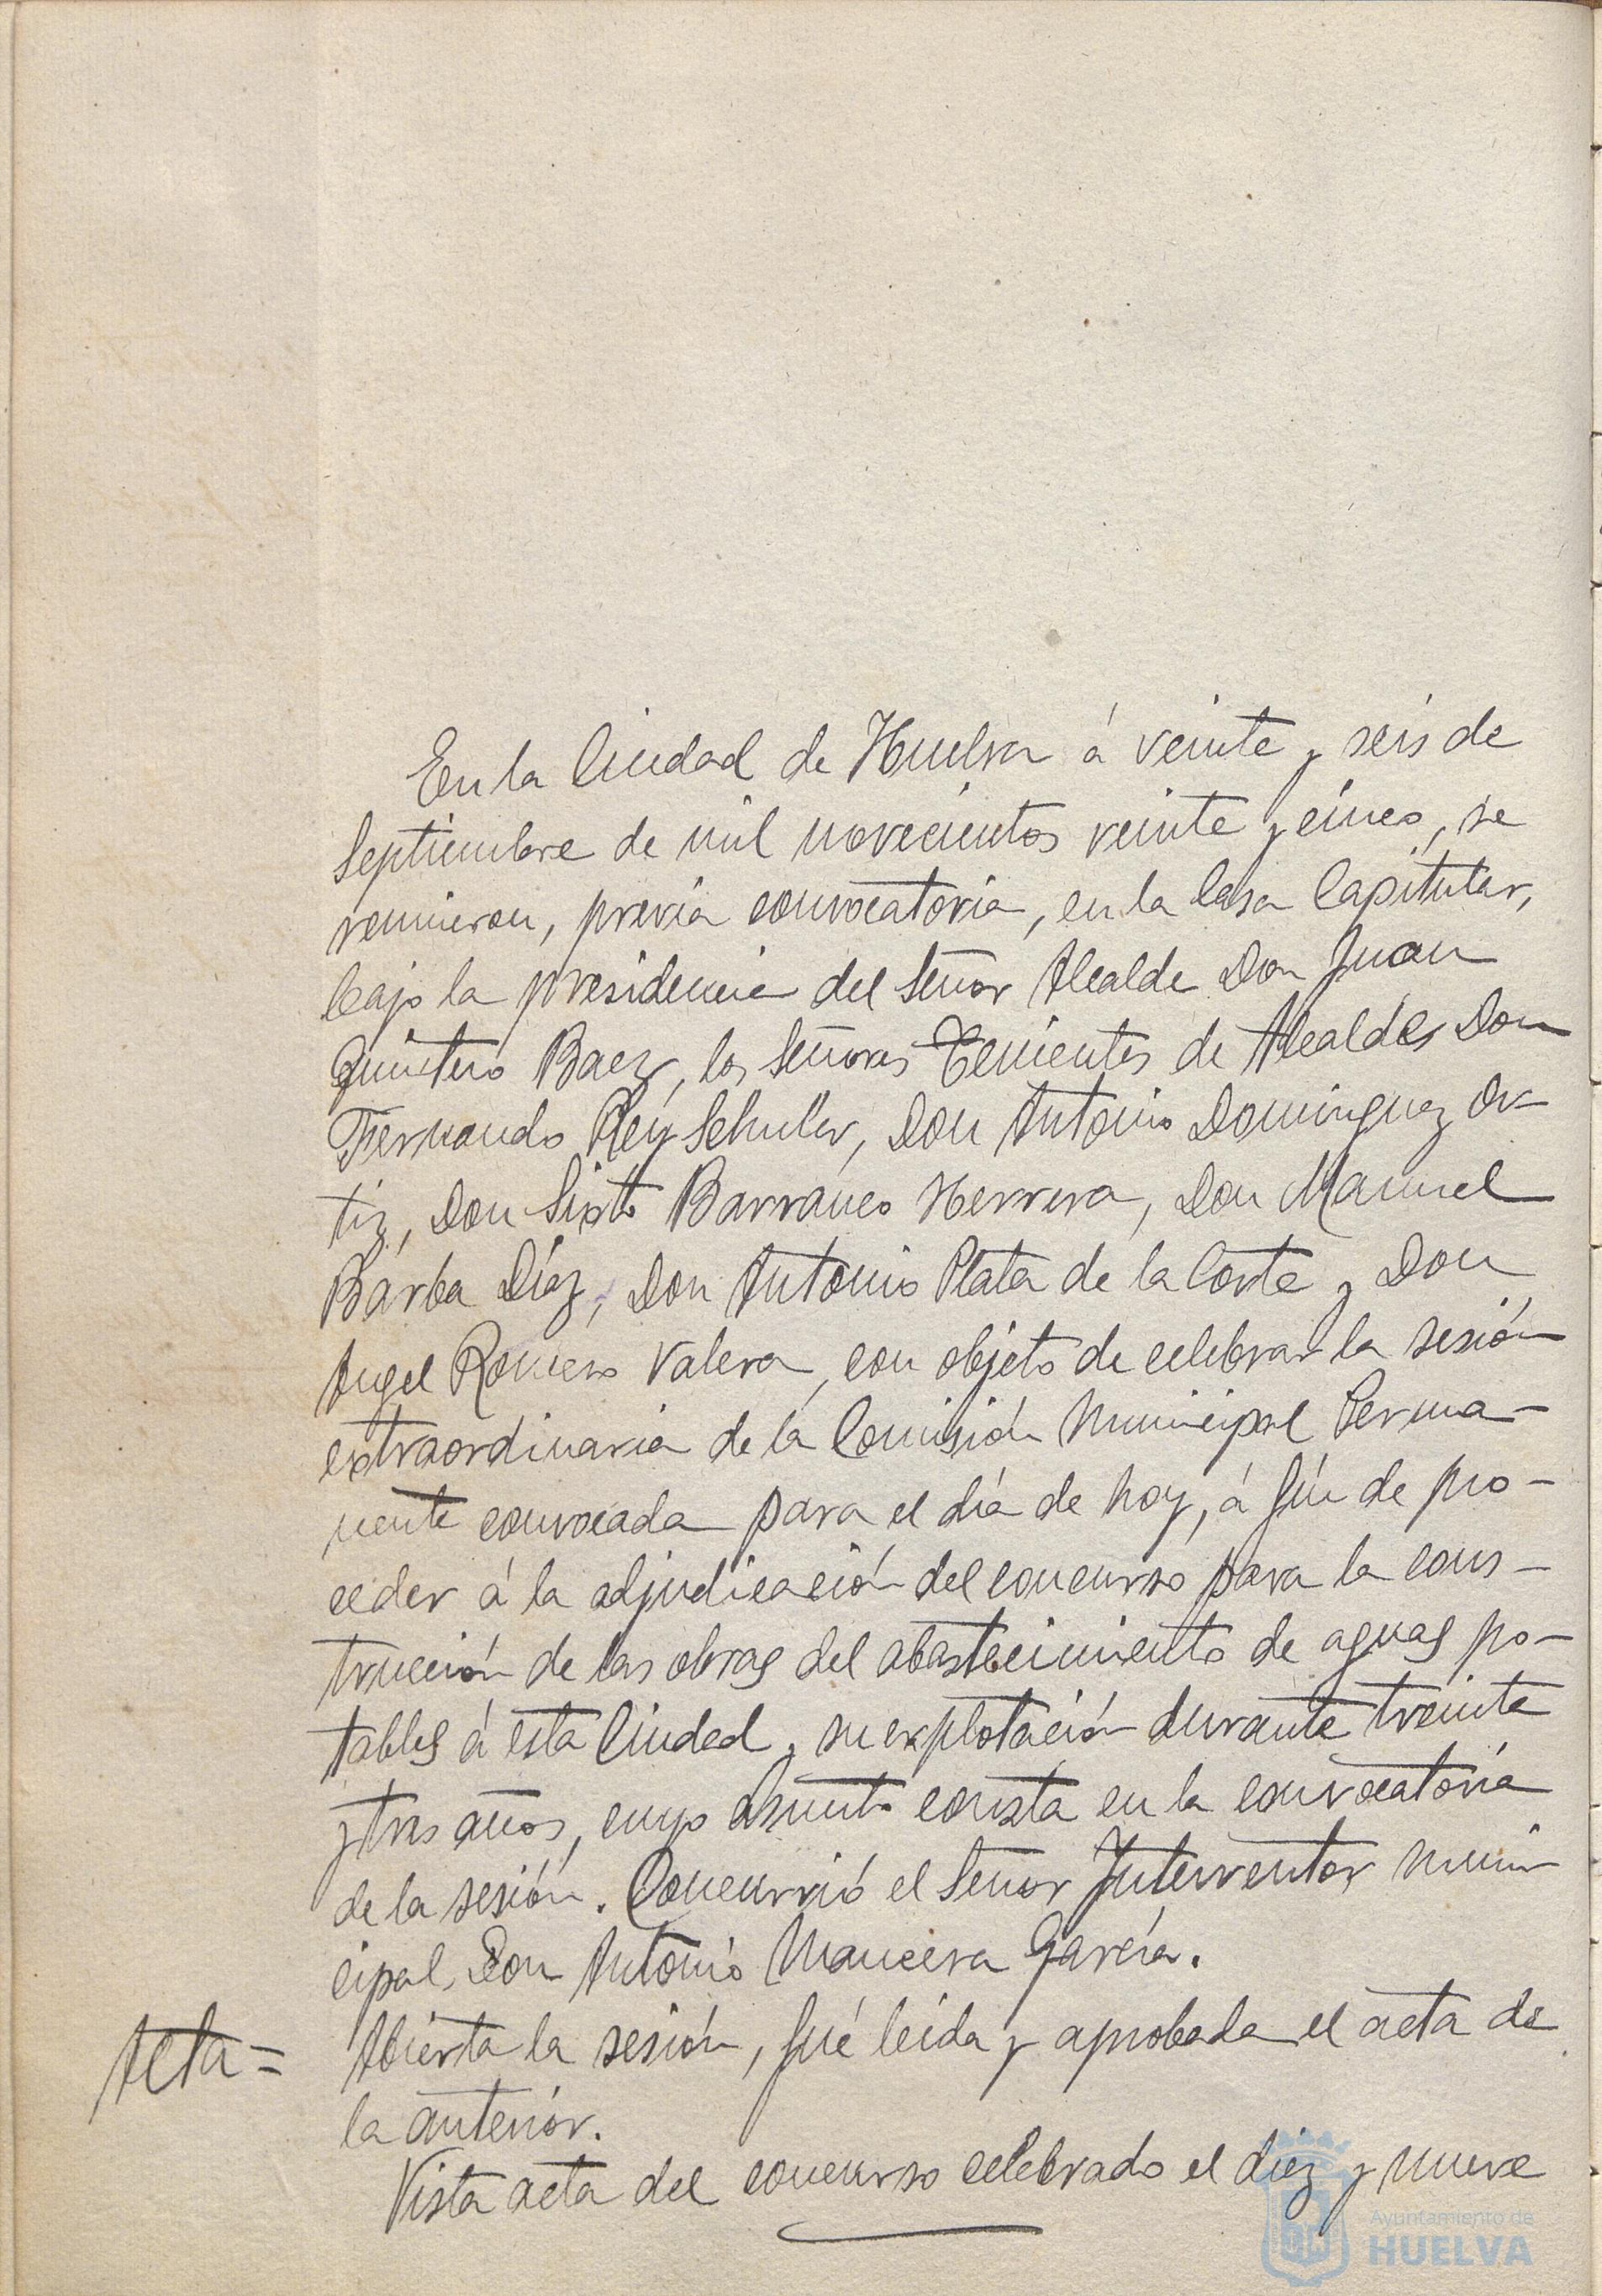 En la Ciudad de Huelva á veinte y seis de
Septiembre de mil novecientos veinte y cinco, se
reunieron, previa convocatoria, en la Casa Capitular,
bajo la presidencia del Señor Alcalde Don Juan
Quintero Baez, los Señores Tenientes de Alcaldes Don
Fernando Rey Schuler, Don Antonio Dominguez Or-
tiz, Don Sixto Barranco Herrera, Don Manuel
Barba Díaz, Don Antonio Plata de la Corte y Don
Angel Romero Valera, con objeto de celebrar la sesión
extraordinaria de la Comisión Municipal Perma-
nente convocada para el día de hoy, á fín de pro-
ceder á la adjudicación del concurso para la cons-
trucción de las obras del abastecimiento de aguas po-
tables á esta Ciudad y su explotación durante treinta
y tres años, cuyo asunto consta en la convocatoria
de la sesión. Concurrió el Señor Interventor muni-
cipal Don Antonio Mancera García.
Acta = Abierta la sesión, fué leida y aprobada el acta de
la anterior.
Vista acta del concurso celebrado el diez y nueve
Ayuntamiento de
HUELVA